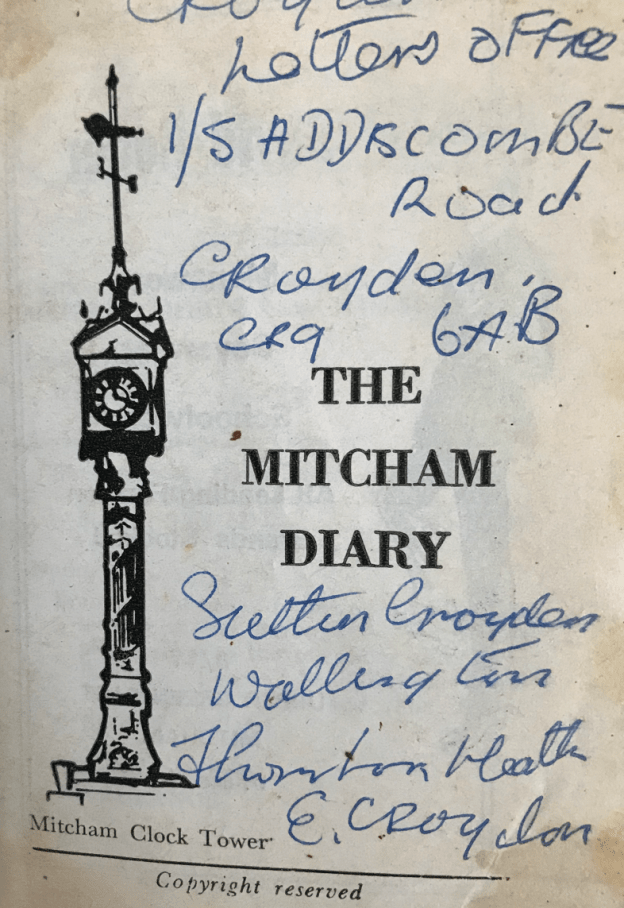 Croydon
Letters office
1/5 ADDISCOMBE
Road
Croydon.
CR9 6AB
THE
MITCHAM
DIARY
Sutton Croydon
Wallington
Thornton Heath
E. CROydon
Mitcham Clock Tower
Copyright reserved